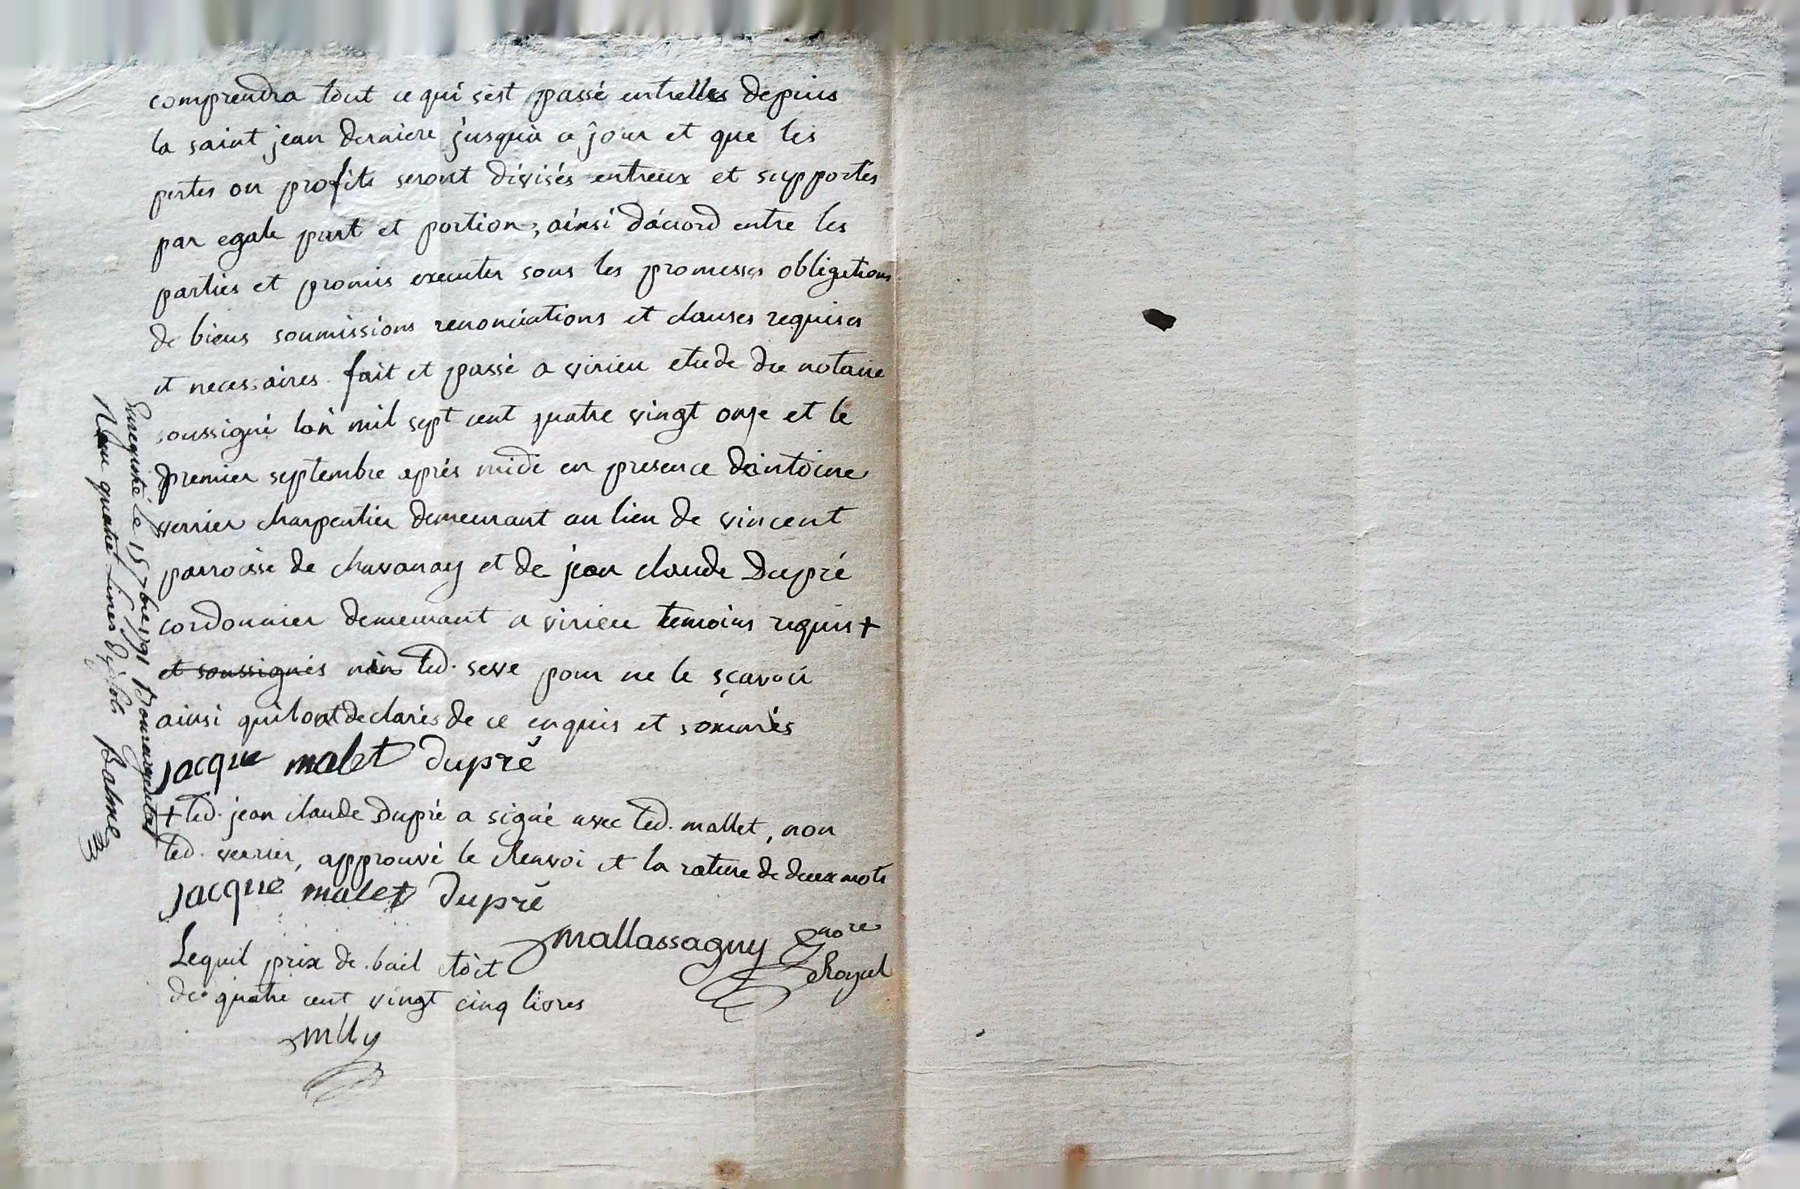 comprendra tout ce qui sest passé entrelles depuis
la saint jean derniere jusqua ce jour et que les
pertes ou profits seront divisés entreux et supportés
par egale part et portion, ainsi dáccord entre les
parties et promis executer sous les promesses obligations
de biens soumissions renonciations et clauses requises
et necessaires. fait et passé a virieu etude du notaire
soussigné lan mil sept cent quatre vingt onze et le
premier septembre aprés midi en presence dantoine
verrier charpentier demeurant au lieu de vincent
parroisse de chavanay et de jean claude Dupré
cordonnier demeurant a virieu temoins requis +
et soussignés non led. serve pour ne le sçavoir
ainsi quil ont declarés de ce enquis et sommés
jacque malet dupré
+ led. jean claude Dupré a signé avec led. mallet, non
led. verrier, approuvé le renvoi et la rature de deux mots
jacque malet dupré
mallassagny nore
Royal
Lequil prix de bail étoit
de quatre cent vingt cinq livres
mlly
Enregistré le 15 7bre 1791
quatre livres Balme